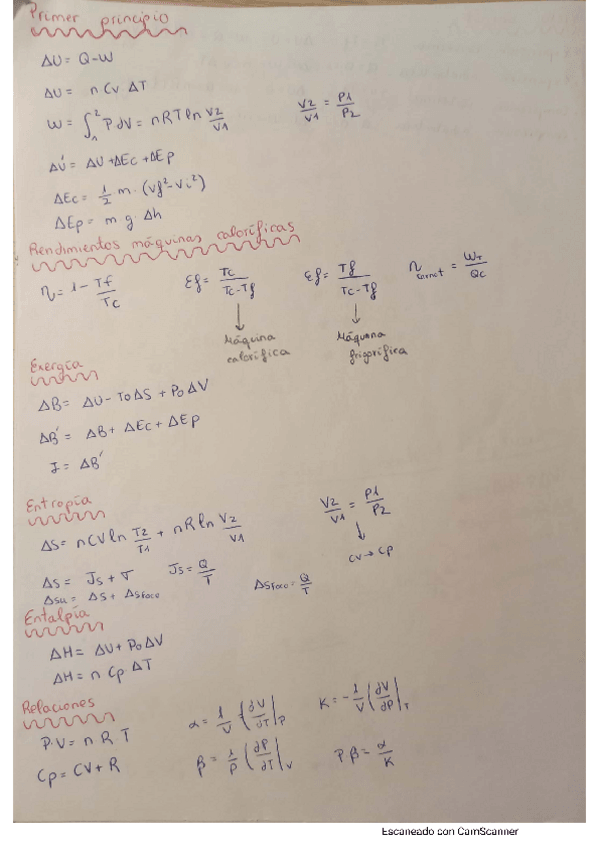 Primer principio
ΔU = Q-W
ΔU = n Cv ΔT
W = ∫₁² P dV = nRT ln V2/V1    V2/V1 = P1/P2
ΔU' = ΔU + ΔEc + ΔEp
ΔEc = 1/2 m · (Vf² - Vi²)
ΔEp = m g · Δh
Rendimientos máquinas caloríficas
η = 1 - Tf/Tc    Ef = Tc/(Tc-Tf)    Ef = Tf/(Tc-Tf)    η carnot = WT/Qc
↓ ↓
Máquina calorífica    Máquina frigorífica
Exergía
ΔB = ΔU - T0 ΔS + P0 ΔV
ΔB' = ΔB + ΔEc + ΔEp
I = ΔB'
Entropía
ΔS = n CV ln T2/T1 + n R ln V2/V1    V2/V1 = P1/P2
↓
CV → Cp
ΔS = Js + σ    Js = Q/T    ΔSfoco = Q/T
ΔSu = ΔS + ΔSfoco
Entalpía
ΔH = ΔU + P0 ΔV
ΔH = n Cp ΔT
Relaciones
P·V = n R T    α = 1/V (∂V/∂T)|P    K = - 1/V (∂V/∂P)|T
Cp = CV + R    β = 1/P (∂P/∂T)|V    P β = α/K
Escaneado con CamScanner